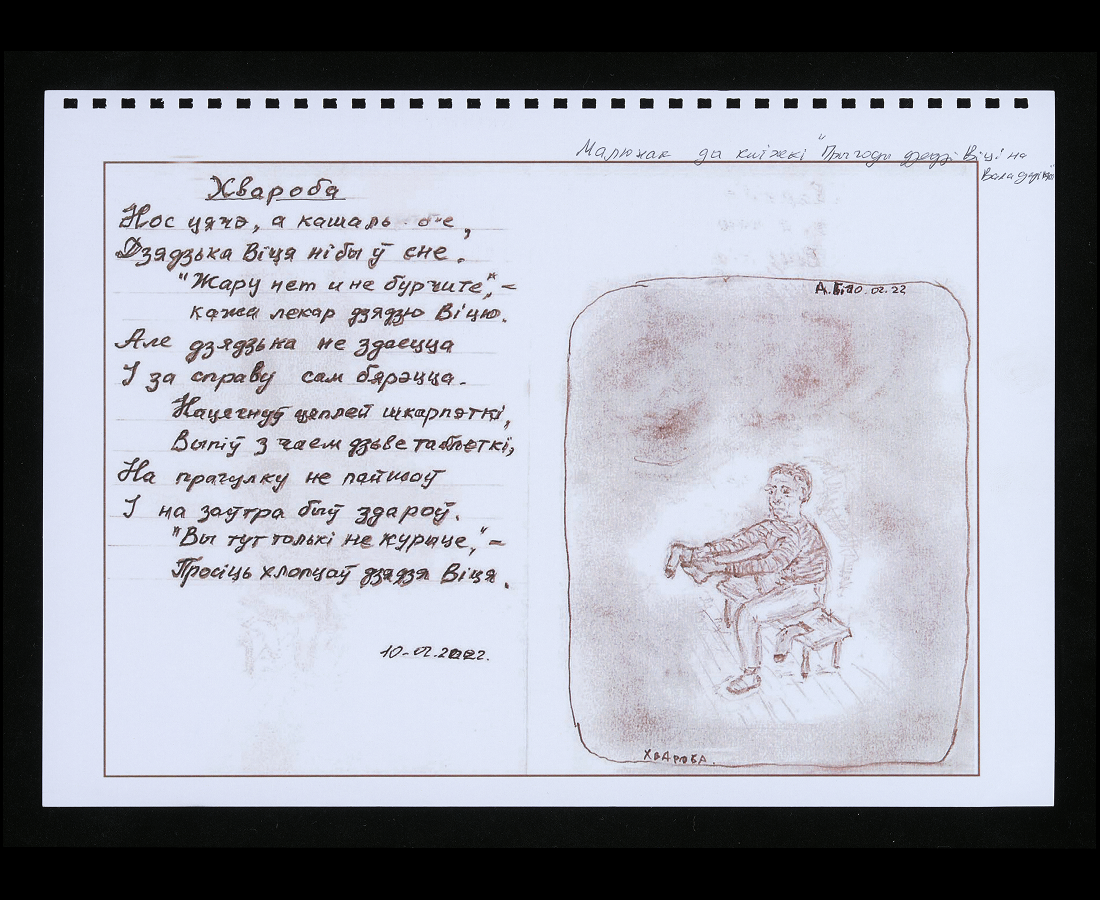 Малюнак да кніжкі "Прыгоды дзядзі Віці на
Валадарцы"
Хвароба
Нос цячэ, а кашаль б'е,
Дзядзька Віця нібы ў сне.
"Жару нет и не бурчите", –
кажа лекар дзядзю Віцю.
Але дзядзька не здаецца
І за справу сам бярэцца.
Нацягнуў цяплей шкарпэткі,
Выпіў з чаем дзьве таблеткі,
На прагулку не пайшоў
І на заўтра быў здароў.
"Вы тут толькі не курыце," –
Просіць хлопцаў дзядзя Віця.
10-02.2022.
10.02.22
ХВАРОБА.